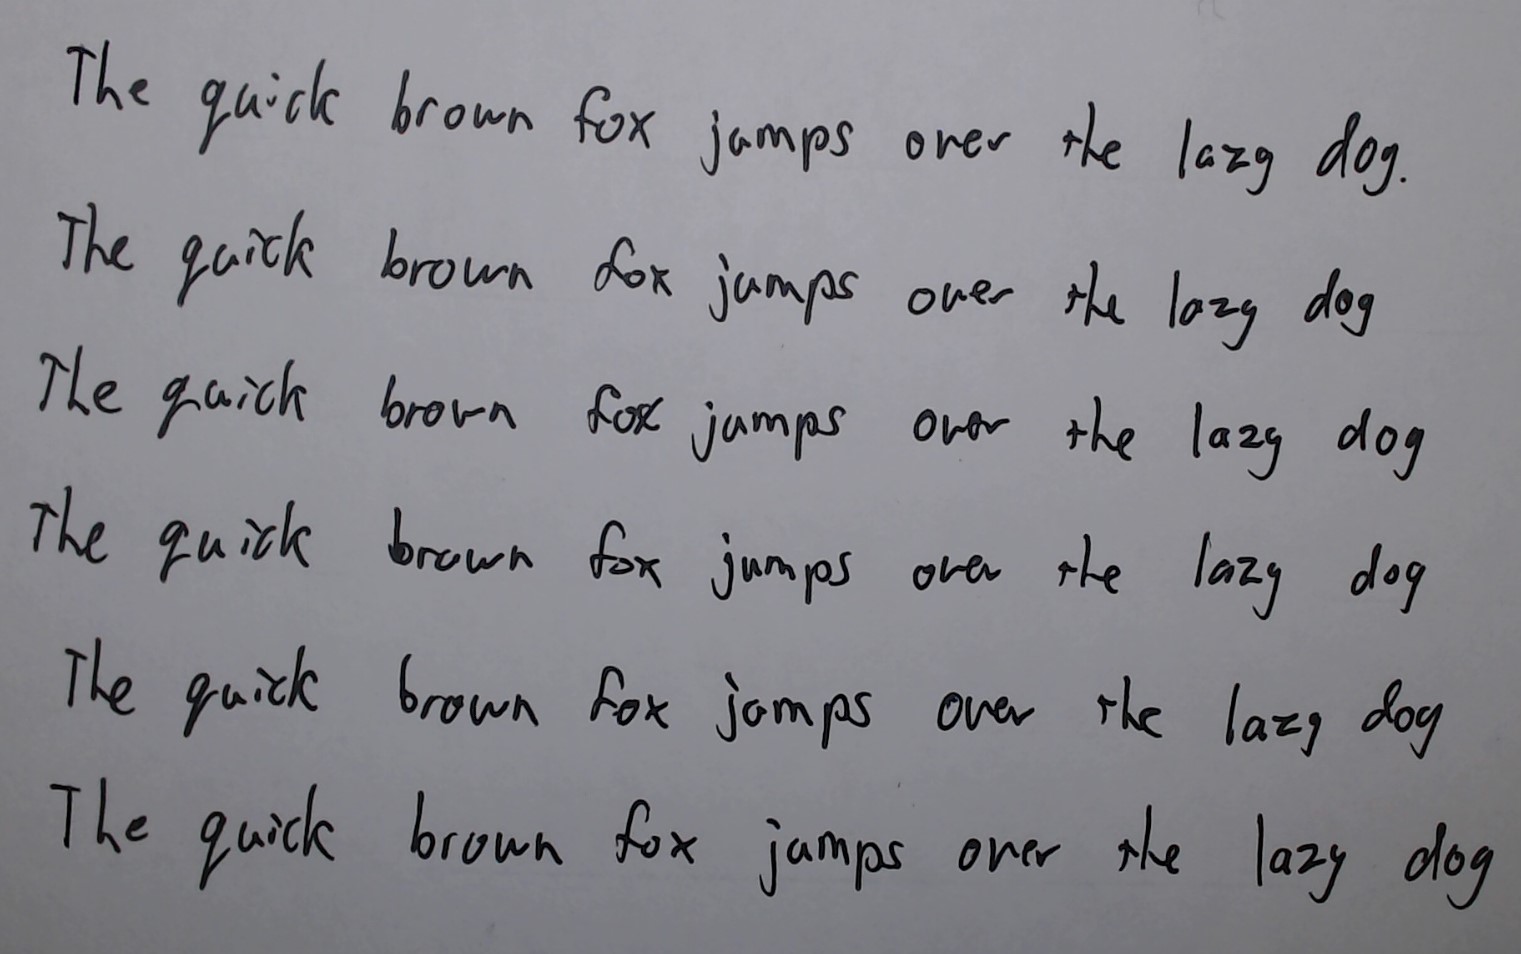 The quick brown fox jumps over the lazy dog.
The quick brown fox jumps over the lazy dog
The quick brown fox jumps over the lazy dog
The quick brown fox jumps over the lazy dog
The quick brown fox jumps over the lazy dog
The quick brown fox jumps over the lazy dog